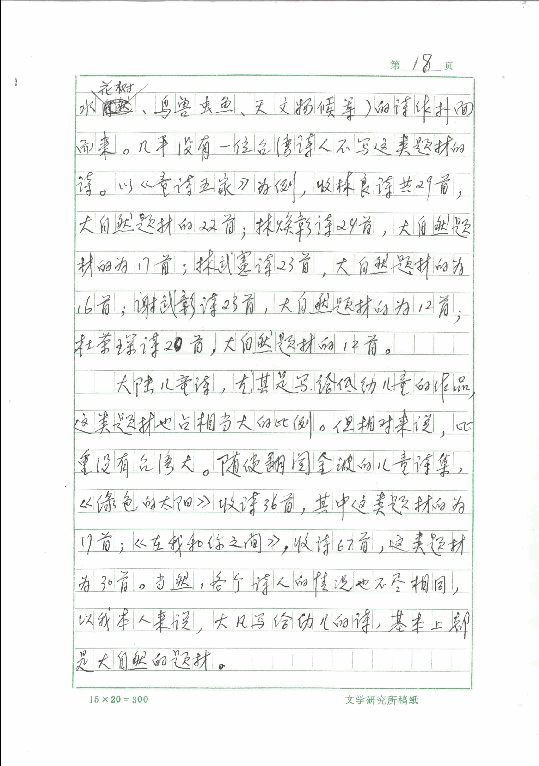 第 18 页
花树
水、鸟兽虫鱼、天文物候等)的诗作扑面
而来。几乎没有一位台湾诗人不写这类题材的
诗。以《童诗五家》为例,收林良诗共29首,
大自然题材的22首;林焕彰诗29首,大自然题
材的为17首;林武宪诗23首,大自然题材的为
16首;谢武彰诗23首,大自然题材的为12首;
杜荣琛诗20首,大自然题材的12首。
大陆儿童诗,尤其是写给低幼儿童的作品,
这类题材也占相当大的比例。但相对来说,比
重没有台湾大。随便翻阅金波的儿童诗集,
《绿色的太阳》收诗36首,其中这类题材的为
17首;《在我和你之间》,收诗67首,这类题材
为30首。当然,各个诗人的情况也不尽相同,
以我本人来说,大凡写给幼儿的诗,基本上都
是大自然的题材。
15×20=300 文学研究所稿纸